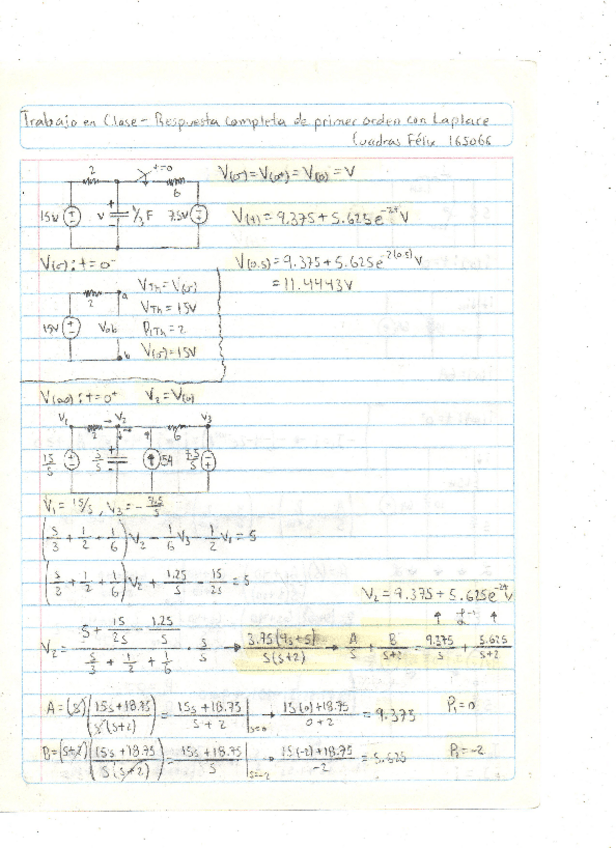 Trabajo en Clase - Respuesta completa de primer orden con Laplace
Cuadras Félix 165066
2 t=0 6
15V V 1/3 F 7.5V
V(0⁻)=V(0⁺)=V(0)=V
V(t)=9.375+5.625e^-2t V
V(0.5)=9.375+5.625e^-2(0.5) V
=11.4443V
V(0⁻): t=0⁻
2 a
15V Vab
b
VTh=V(0⁻)
VTh=15V
RTh=2
V(0⁻)=15V
V(∞): t=0⁺ V2=V(0)
V1 2 V2 6 V3
15/s 3/s 5A 7.5/s
V1=15/s, V3=-7.5/s
(s/3+1/2+1/6)V2-1/6V3-1/2V1=5
(s/3+1/2+1/6)V2+1.25/s-15/2s=5
V2=9.375+5.625e^-2t V
↑ ℒ⁻¹ ↑
V2=(5+15/2s-1.25/s)/(s/3+1/2+1/6)·s/s → 3.75(4s+5)/s(s+2) → A/s+B/s+2=9.375/s+5.625/s+2
A=(s)(15s+18.75/s(s+2))=15s+18.75/s+2|s=0 → 15(0)+18.75/0+2=9.375 P1=0
B=(s+2)(15s+18.75/s(s+2))=15s+18.75/s|s=-2 → 15(-2)+18.75/-2=5.625 P2=-2